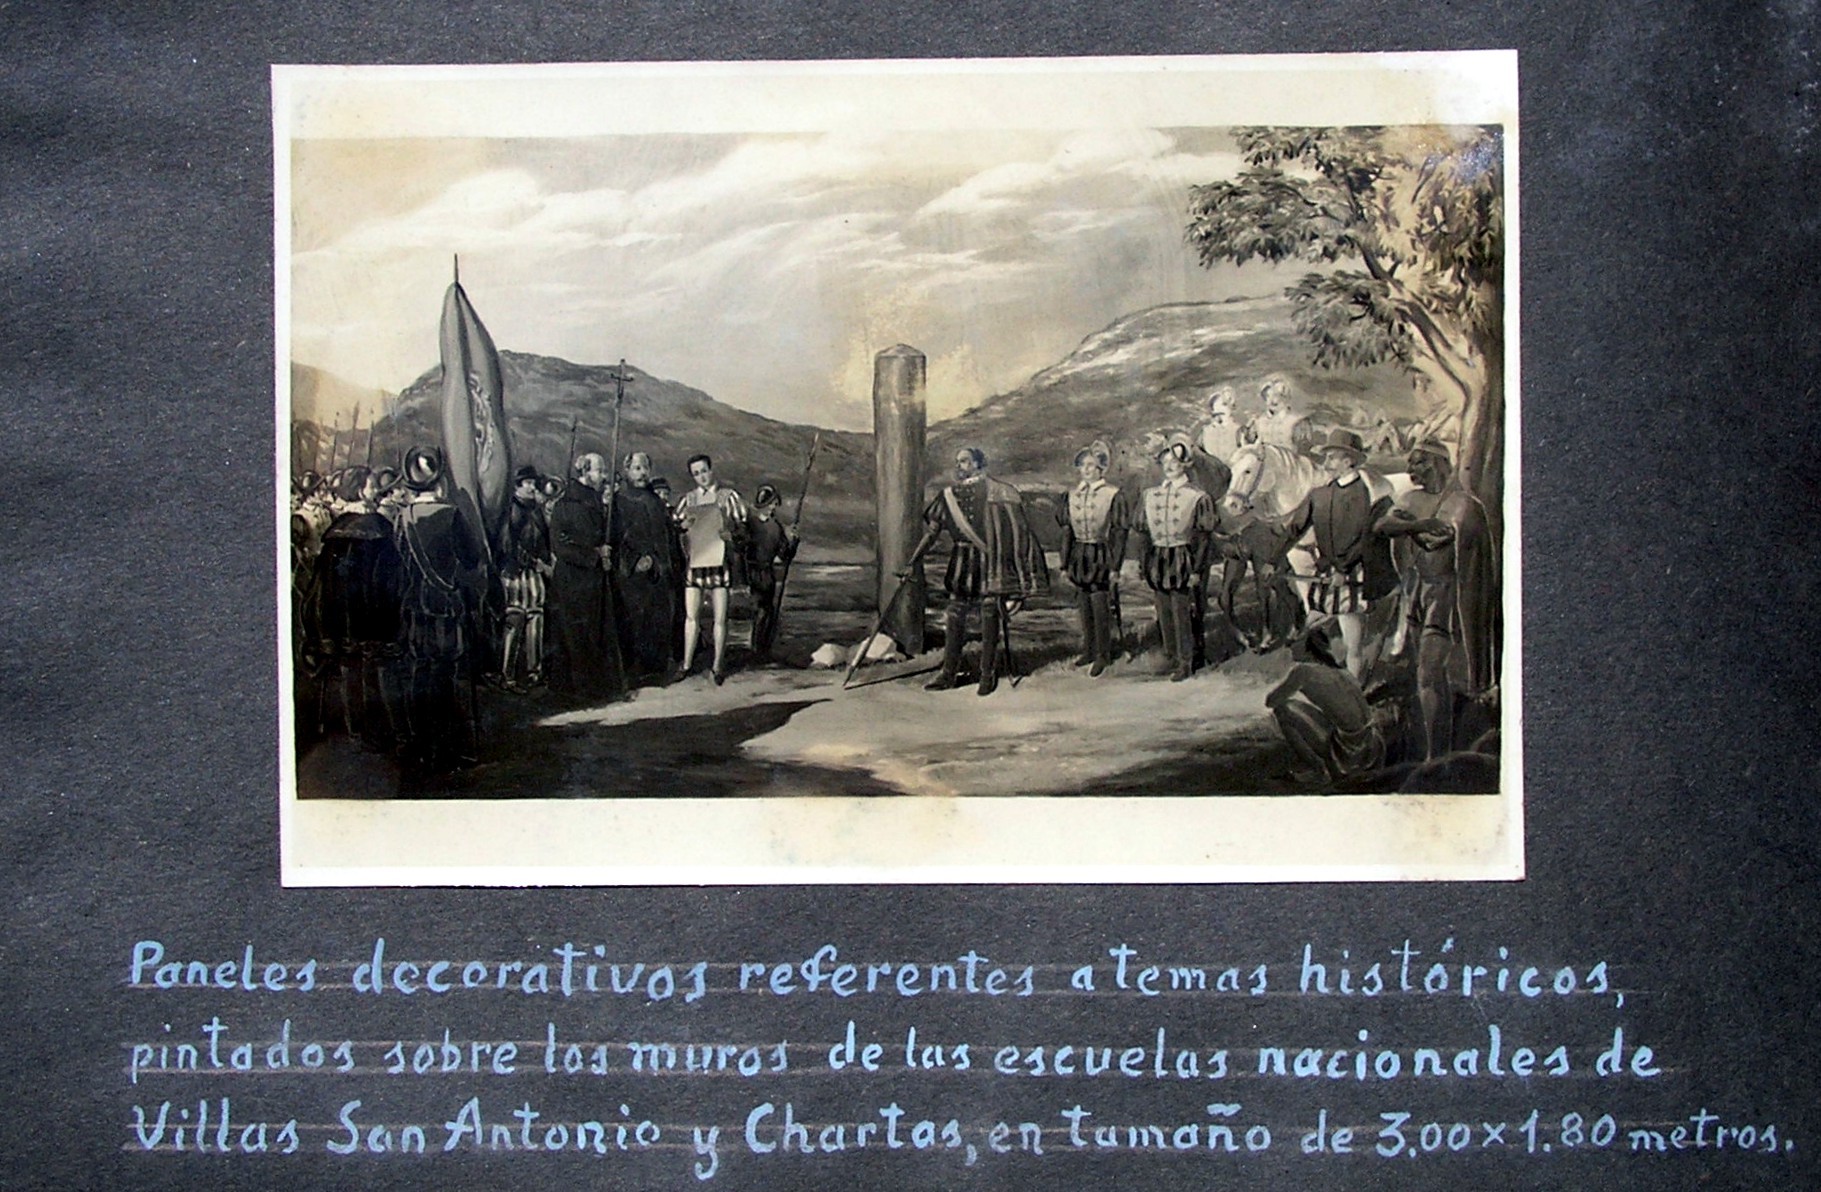 Paneles decorativos referentes a temas históricos,
pintados sobre los muros de las escuelas nacionales de
Villas San Antonio y Chartas, en tamaño de 3.00 x 1.80 metros.